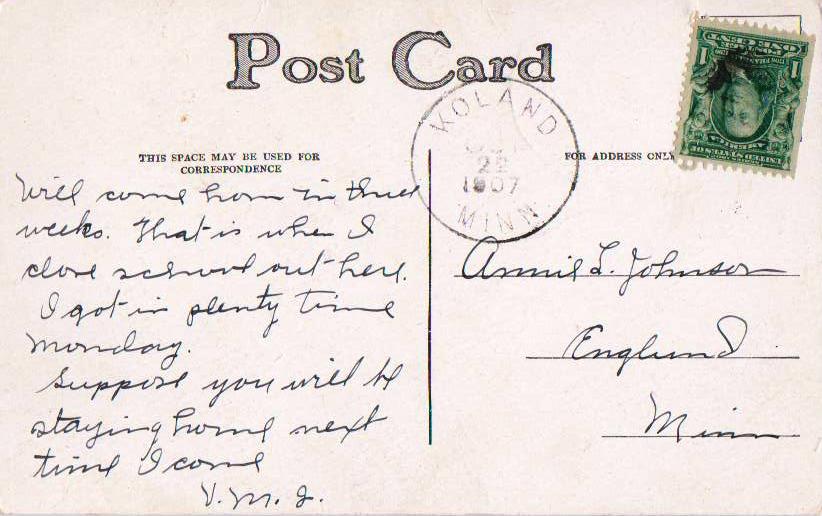 Post Card
KOLAND
22
1907
MINN
THIS SPACE MAY BE USED FOR
CORRESPONDENCE
FOR ADDRESS ONLY
ONE CENT
POSTAGE
1 1
AMERICA
UNITED STATES OF
Will come hom in three
weeks. That is when I
close school out here.
I got in plenty time
Monday.
Suppose you will be
staying home next
time I come
V. M. J.
Annie L. Johnson
Englund
Minn